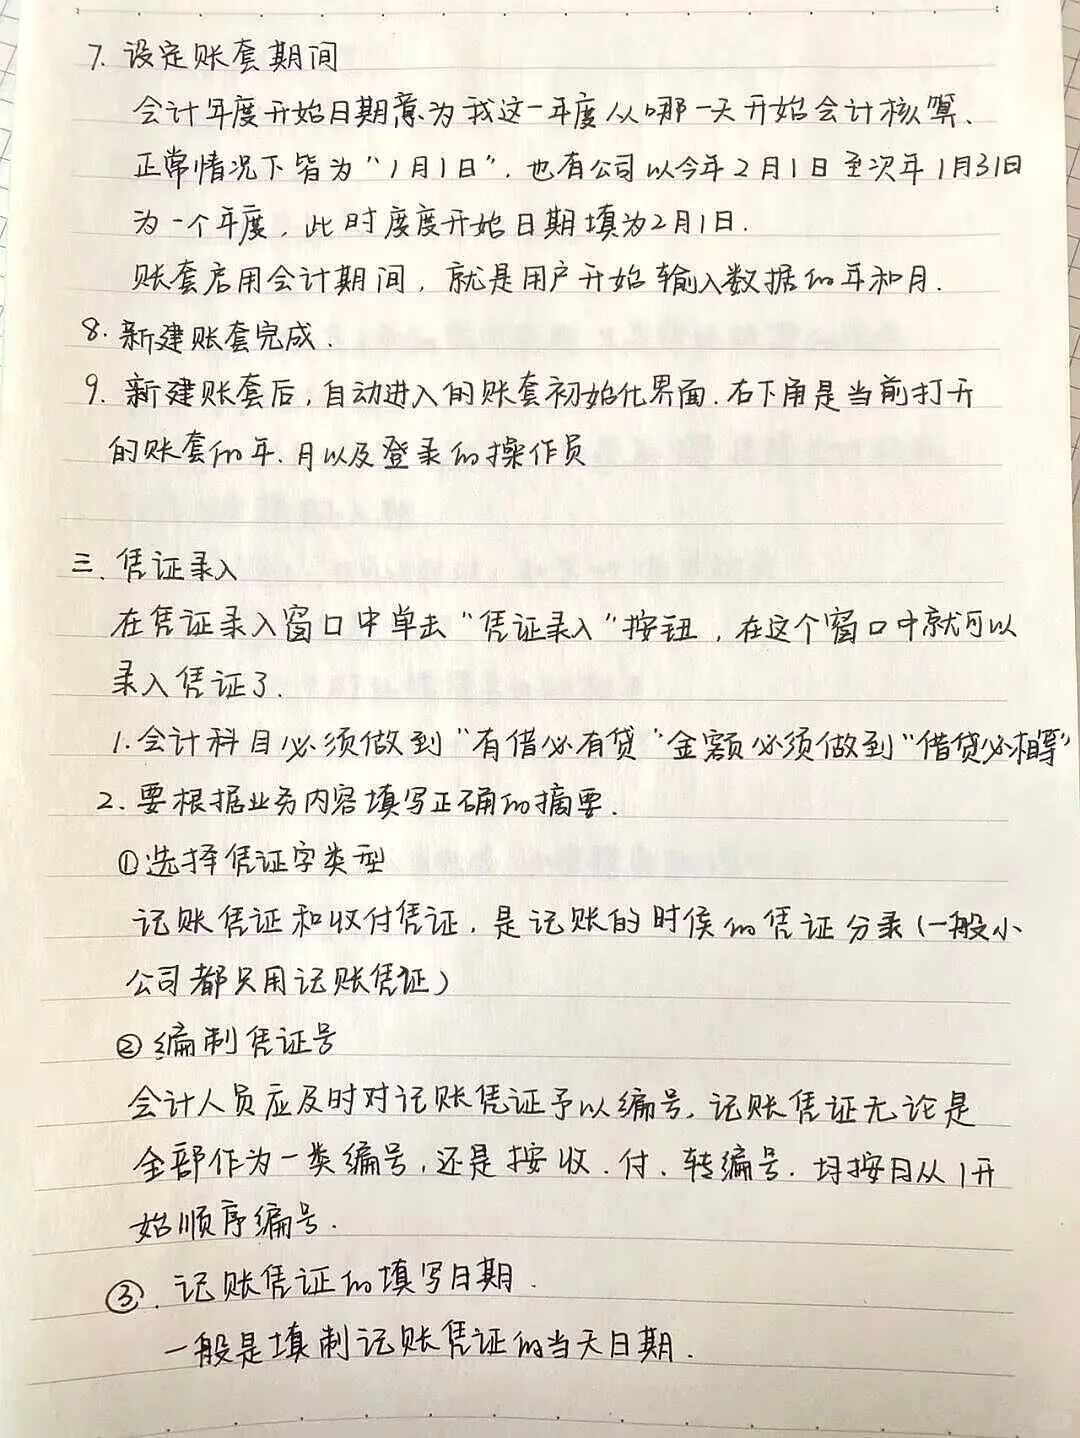 7. 设定账套期间
会计年度开始日期意为我这一年度从哪一天开始会计核算、
正常情况下皆为“1月1日”. 也有公司以今年2月1日至次年1月31日
为一个年度, 此时度度开始日期填为2月1日.
账套启用会计期间, 就是用户开始输入数据的年和月.
8. 新建账套完成.
9. 新建账套后, 自动进入的账套初始化界面. 右下角是当前打开
的账套的年、月以及登录的操作员
三、凭证录入
在凭证录入窗口中单击“凭证录入”按钮, 在这个窗口中就可以
录入凭证了.
1. 会计科目必须做到“有借必有贷”金额必须做到“借贷必相等”
2. 要根据业务内容填写正确的摘要.
①选择凭证字类型
记账凭证和收付凭证, 是记账的时侯的凭证分录(一般小
公司都只用记账凭证)
②编制凭证号
会计人员应及时对记账凭证予以编号, 记账凭证无论是
全部作为一类编号, 还是按收、付、转编号. 均按月从1开
始顺序编号.
③. 记账凭证的填写日期.
一般是填制记账凭证的当天日期.